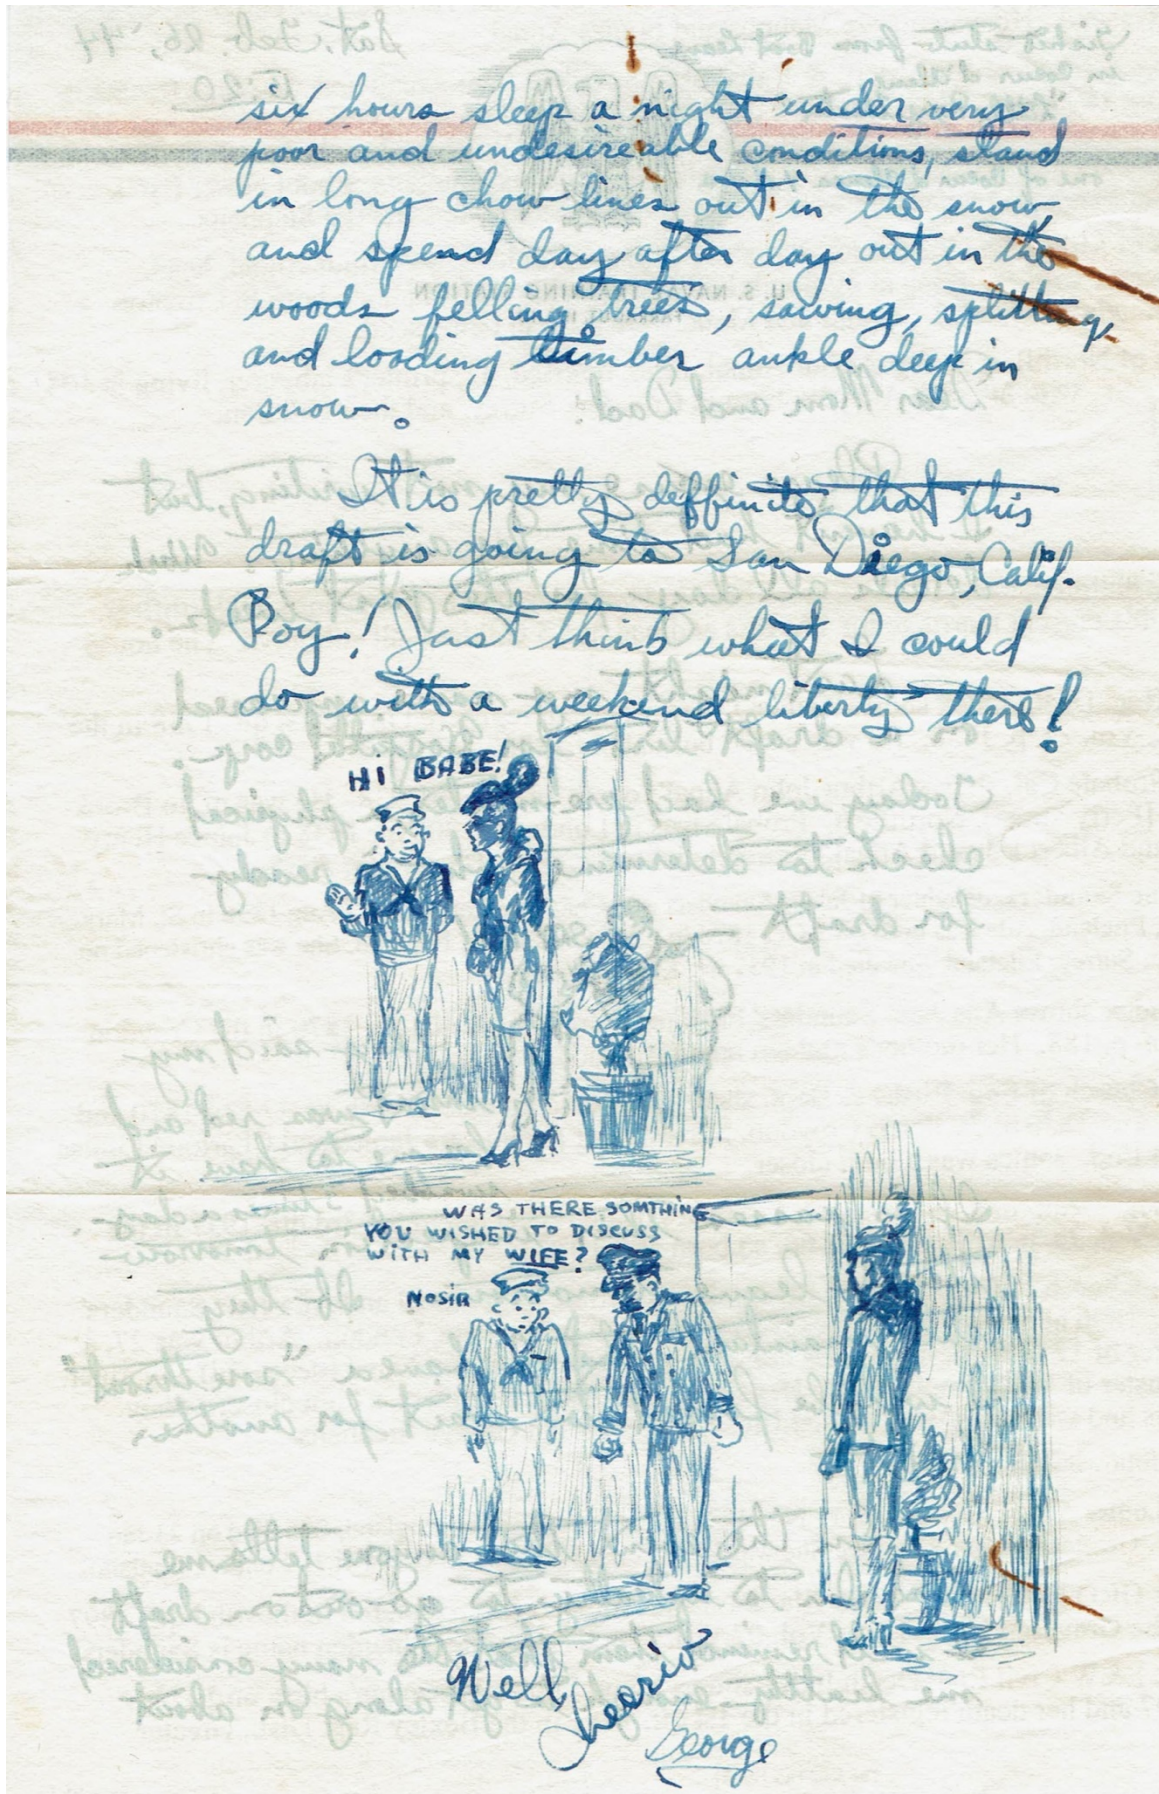 six hours sleep a night under very
poor and undesireable conditions, stand
in long chow lines out in the snow,
and spend day after day out in the
woods felling trees, sawing, splitting,
and loading timber ankle deep in
snow.
It is pretty deffinite that this
draft is going to San Diego, Calif.
Boy! Just think what I could
do with a weekend liberty there!
HI BABE!
WAS THERE SOMTHING
YOU WISHED TO DISCUSS
WITH MY WIFE?
NOSIR
Well,
Cheerio
George